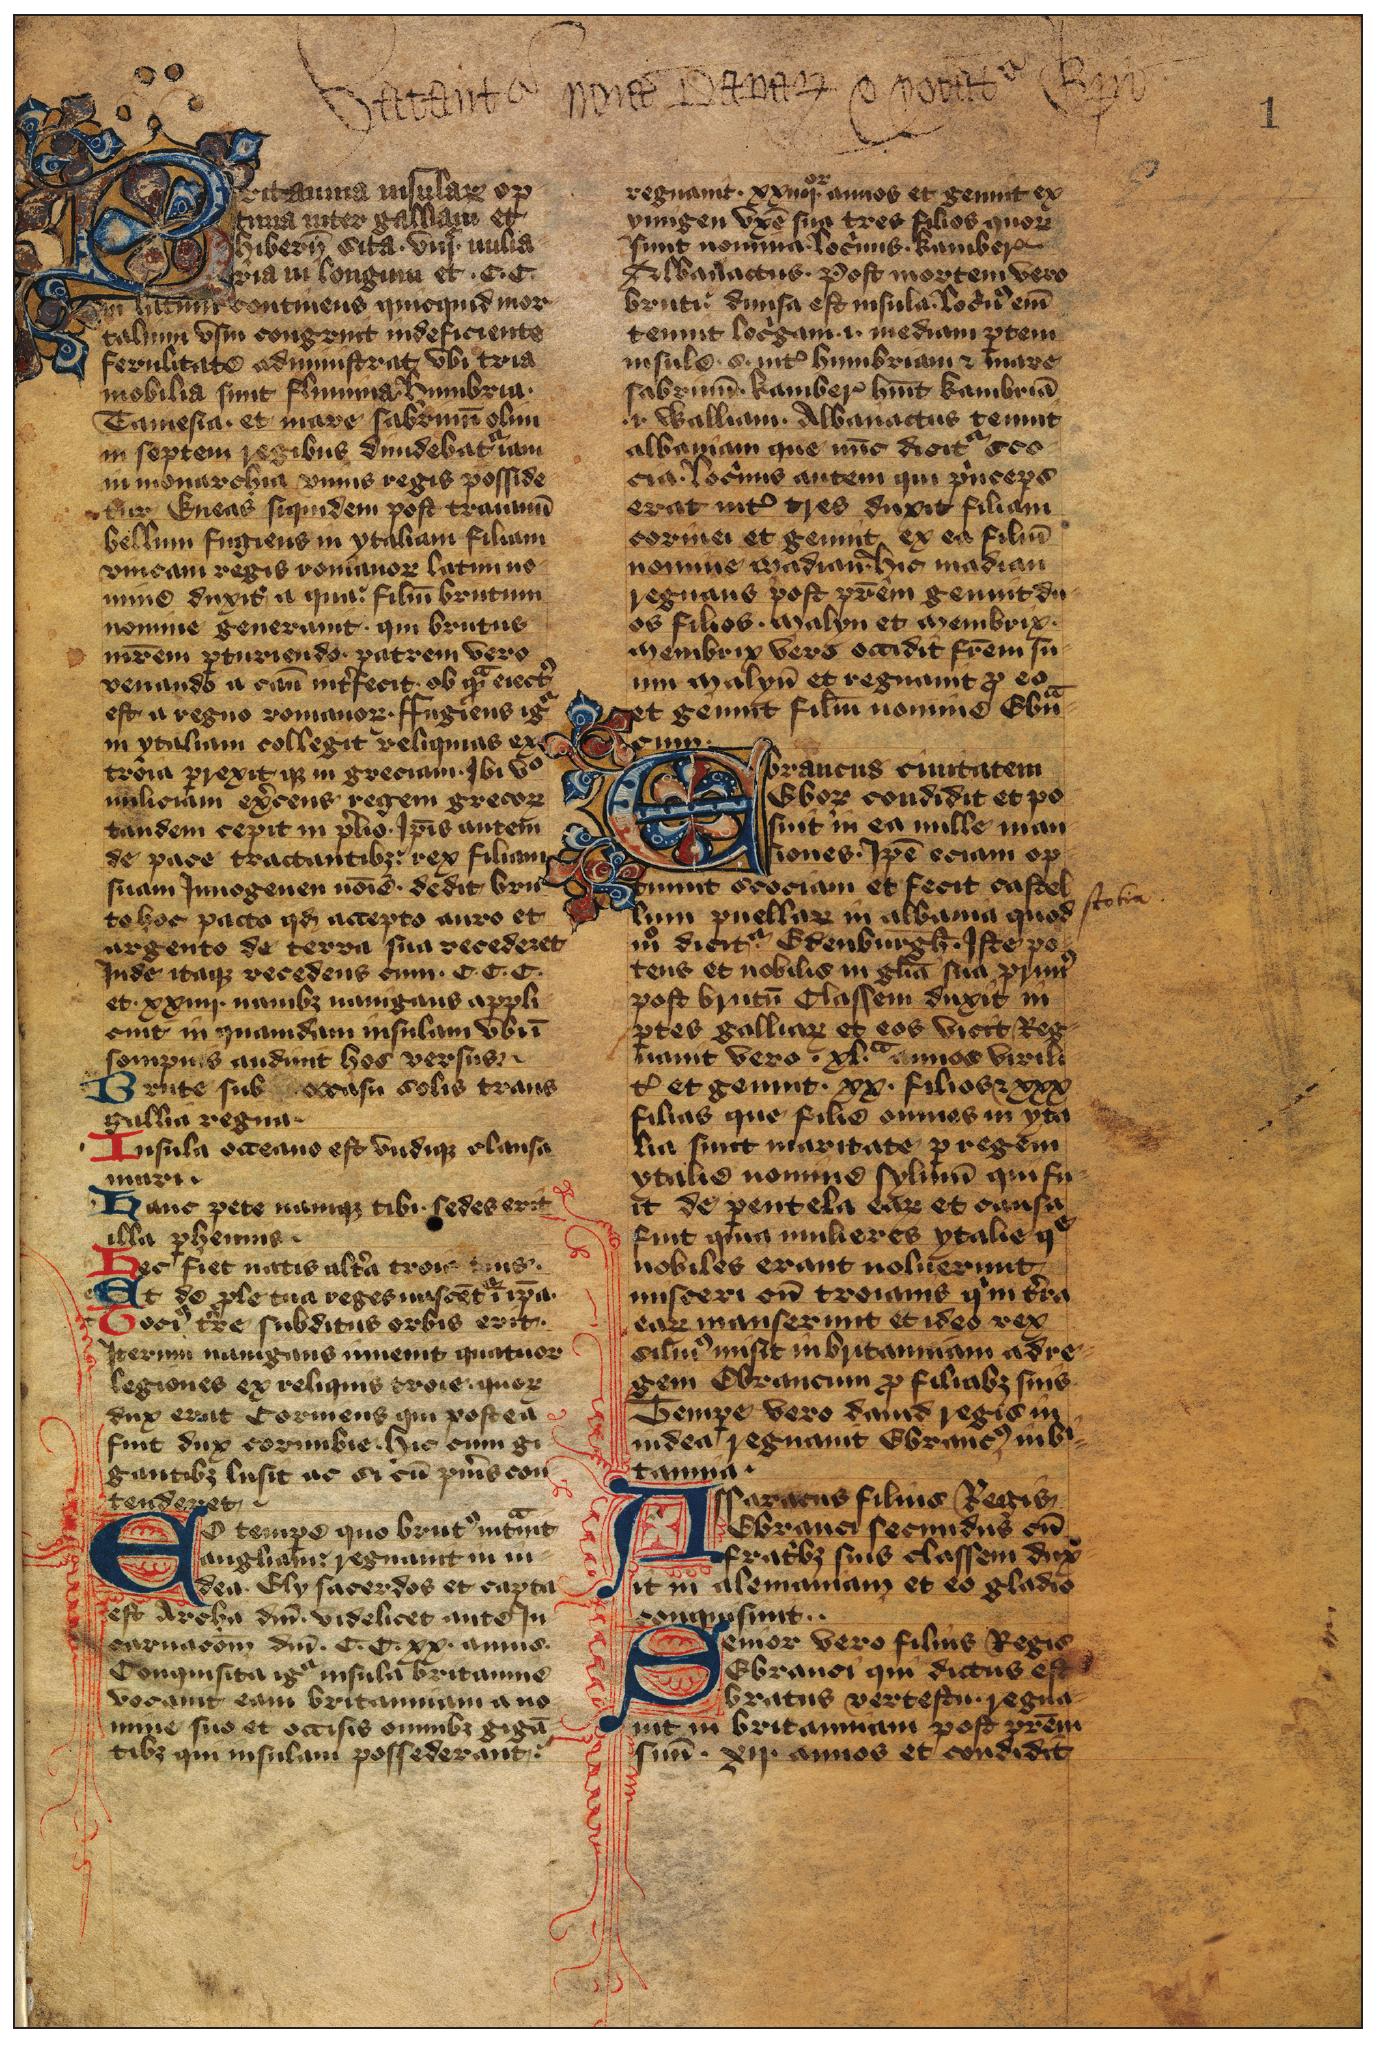 1
Britannia insular op
tima inter galliam et
hiberniā sita . viij . milia
ria in longum et . C . C .
in latum continens quicquid mor
talium vsui congruit indeficiente
fertilitate administrat vbi tria
nobilia sunt flumina Humbria .
Tamesia . et mare sabrinū olim
in septem regibus diuidebatᵃ iam
in monarchia vnius regis posside
tur Eneas siquidem post troianū
bellum fugiens in ytaliam filiam
vnicam regis romanor latini no
mine duxit a qua filiū brutum
nomine generauit . qui brutus
mr̄em pturiendo . patrem vero
venando a casu int̓fecit . ob qᵃ eiectꝰ
est a regno romanor . ffugiens igᵃ
in ytaliam collegit reliquias ex
troia prexit qꝫ in greciam . Ibi vᵒ
miliciam ex̓cens regem grecor
tandem cepit in p̓lio . Ip̄is autem
de pace tractantibꝫ rex filiam
suam Innogenen nōie . dedit bru
to hoc pacto qd̓ accepto auro et
argento de terra sua recederet
Inde itaqꝫ recedens cum . C . C . C .
et . xxiiij . nauibꝫ nauigans appli
cuit in quamdam insulam vbi ī
sompnis audiuit hos versus
Brute sub occasu solis trans
gallia regna .
Insula occeano est vndiqꝫ clausa
mari .
Hanc pete namqꝫ tibi . sedes erit
illa phennis .
Hec fiet natis alt̓a troia tuis .
Et de ple tua reges nascētᵃ ī ip̄a .
Tociꝰ t̓re subditus orbis erit .
Iterum nauigans inuenit quatuor
legiones ex reliquiis troie . quor
dux erat Corineus qui postea
fuit dux cornubie . hic cum gi
gantibꝫ lusit ac si cū pu̓is con
tenderet
Eo tempe quo brutꝰ intᵃuit
angliam regnauit in iu
dea . Ely sacerdos et capta
est Archa dn̄i . videlicet ante In
carnacōm dn̄i . C . C . xx . annis .
Conquisita igᵃ insula britannie
vocauit eam britanniam a no
mine suo et occisis omnibꝫ gigā
tibꝫ qui insulam possederant .
regnauit . xxiiijᵒʳ annos et genuit ex
ynngen vxe sua tres filios quor
sunt nomina . locrinus . kamber
Albanactus . Post mortem vero
bruti diuisa est insula . locrin̄ em̄
tenuit loegam . i . mediam ptem
insule . s . int̓ humbriam ⁊ mare
sabrinū . kamber hūit kambriā
.i. Walliam . Albanactus tenuit
albaniam que nūc dicitᵃ sco
cia . locrinus autem qui p̓nceps
erat int̓ tres duxit filiam
corinei et genuit ex ea filiū
nomine madian . hic madian
regnans post pr̄em genuit du
os filios . malyn et membrix .
membrix vero occidit fr̄em su
um malyn̄ et regnauit ꝓ eo
et genuit filiū nomine Ebrā
cum .
Ebrancus ciuitatem
Ebor condidit et po
suit in ea mille man
siones . Ipē eciam op
tinuit scociam et fecit castel
lum puellar in albania quod
mᵒ dicitᵃ Edenburgh . Iste po
tens et nobilis in gl̄ia sua primꝰ
post brutū Classem duxit in
ptes galliar et eos vicit Reg
nauit vero . xl.ᵃ annos virili
t̓ et genuit . xx . filios ⁊ xxx
filias que filie omnes in yta
lia sunt maritate p regem
ytalie nomine syluiū qui fu
it de pentela ear et causa
fuit quia mulieres ytalie qᵉ
nobiles erant noluerunt
misceri cū troianis qͥ in t̓ra
ear manserunt et ideo rex
siluiꝰ misit in britanniam ad re
gem Ebrancum ꝓ filiabꝫ suis
Tempe vero dauid regis in
iudea regnauit Ebrancꝰ in bͥ
tannia .
Assaracus filius Regis
Ebranci secundus cū
fratribꝫ suis classem dux
it in alemaniam et eo gladio
conquisiuit . .
Senior vero filius Regis
Ebranci qui dictus est
bratus vertesttu . regna
uit in britanniam post pr̄em
suū . xij . annos et condidit
scotia .